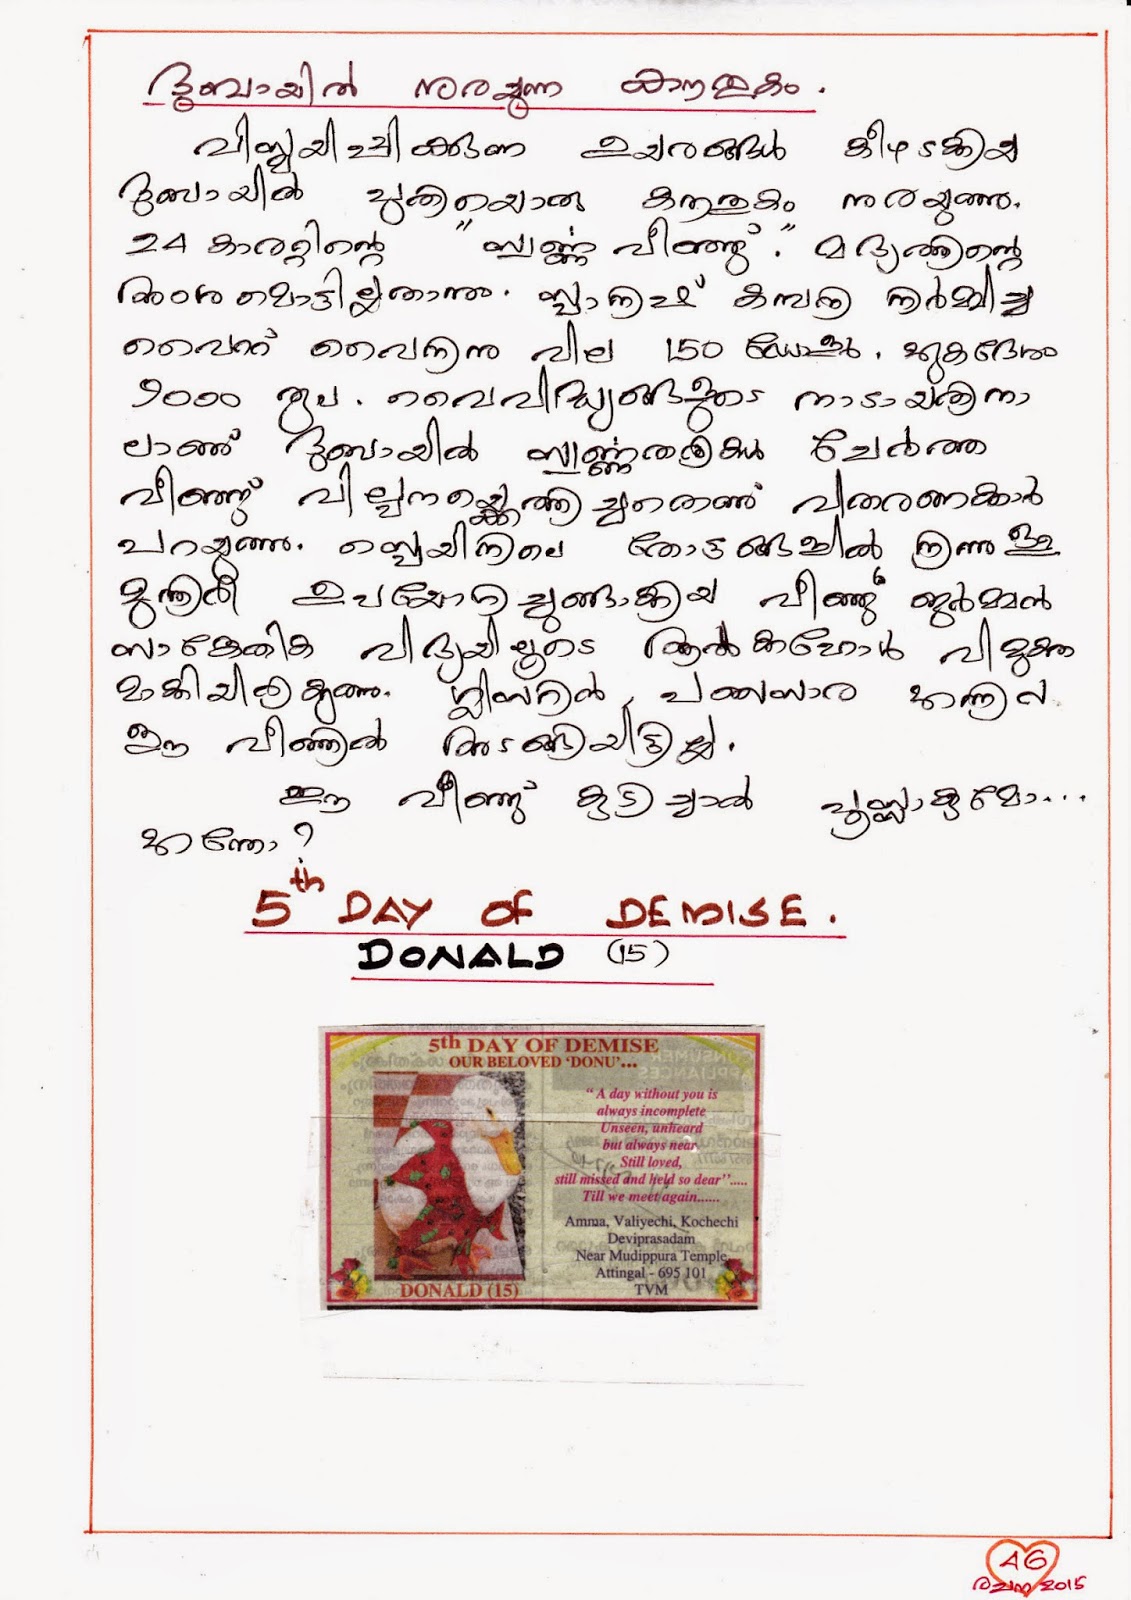 ദുബായിൽ നുരയുന്ന കൗതുകം.
വിസ്മയിപ്പിക്കുന്ന ഉയരങ്ങൾ കീഴടക്കിയ
ദുബായിൽ പുതിയൊരു കൗതുകം നുരയുന്നു.
24 കാരറ്റിന്റെ "സ്വർണ്ണ വീഞ്ഞ്." മദ്യത്തിന്റെ
അംശമൊട്ടില്ലതാനും. സ്പാനിഷ് കമ്പനി നിർമ്മിച്ച
വൈറ്റ് വൈനിനു വില 150 ഡോളർ. ഏകദേശം
9000 രൂപ. വൈവിദ്ധ്യങ്ങളുടെ നാടായതിനാ
ലാണ് ദുബായിൽ സ്വർണ്ണതരികൾ ചേർത്ത
വീഞ്ഞ് വില്പനയ്ക്കെത്തിച്ചതെന്ന് വിതരണക്കാർ
പറയുന്നു. സ്പെയിനിലെ തോട്ടങ്ങളിൽ നിന്നുള്ള
മുന്തിരി ഉപയോഗിച്ചുണ്ടാക്കിയ വീഞ്ഞ് ജർമ്മൻ
സാങ്കേതിക വിദ്യയിലൂടെ ആൽക്കഹോൾ വിമുക്ത
മാക്കിയിരിക്കുന്നു. ഗ്ലിസറിൻ, പഞ്ചസാര എന്നിവ
ഈ വീഞ്ഞിൽ അടങ്ങിയിട്ടില്ല.
ഈ വീഞ്ഞ് കുടിച്ചാൽ പൂസ്സാകുമോ...
എന്തോ?
5th DAY OF DEMISE.
DONALD (15)
5th DAY OF DEMISE
OUR BELOVED 'DONU'...
" A day without you is
always incomplete
Unseen, unheard
but always near
Still loved,
still missed and held so dear".....
Till we meet again......
Amma, Valiyechi, Kochechi
Deviprasadam
Near Mudippura Temple
Attingal - 695 101
TVM
DONALD (15)
46
രചന 2015